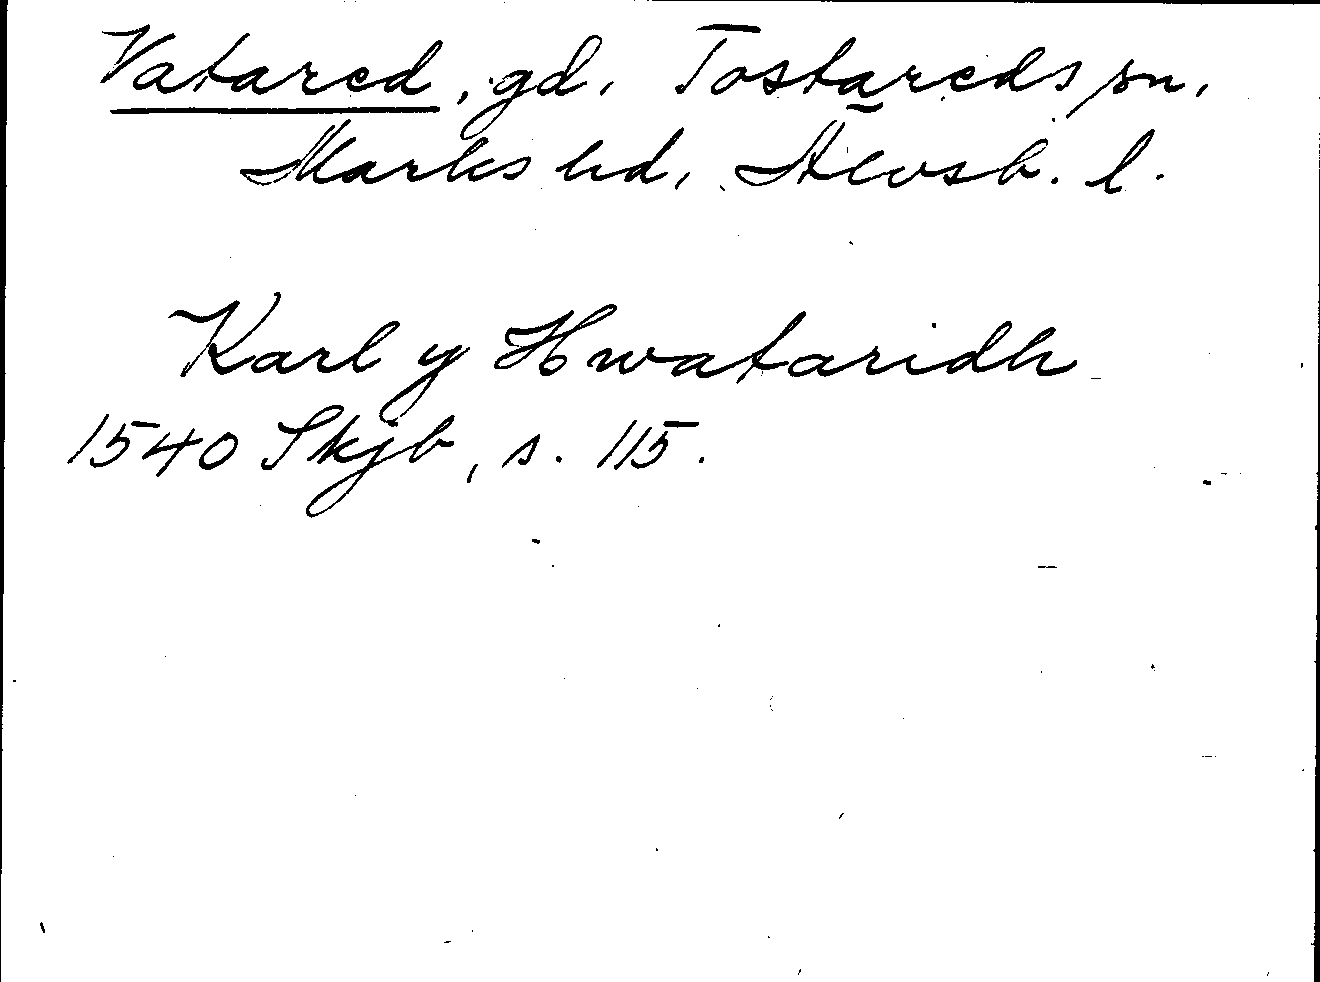 Vatared, gd, Tostareds sn,
Marks hd, Älvsb. l.
Karl y Hwataridh
1540 Skjb, s. 115.